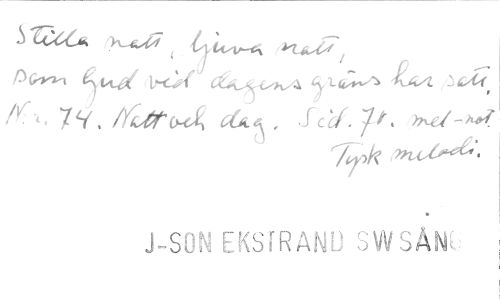 Stilla natt, ljuva natt,
som Gud vid dagens gräns har satt.
Nr. 74. Natt och dag. Sid. 70. mel-not.
Tysk melodi.
J-SON EKSTRAND SWSÅNG